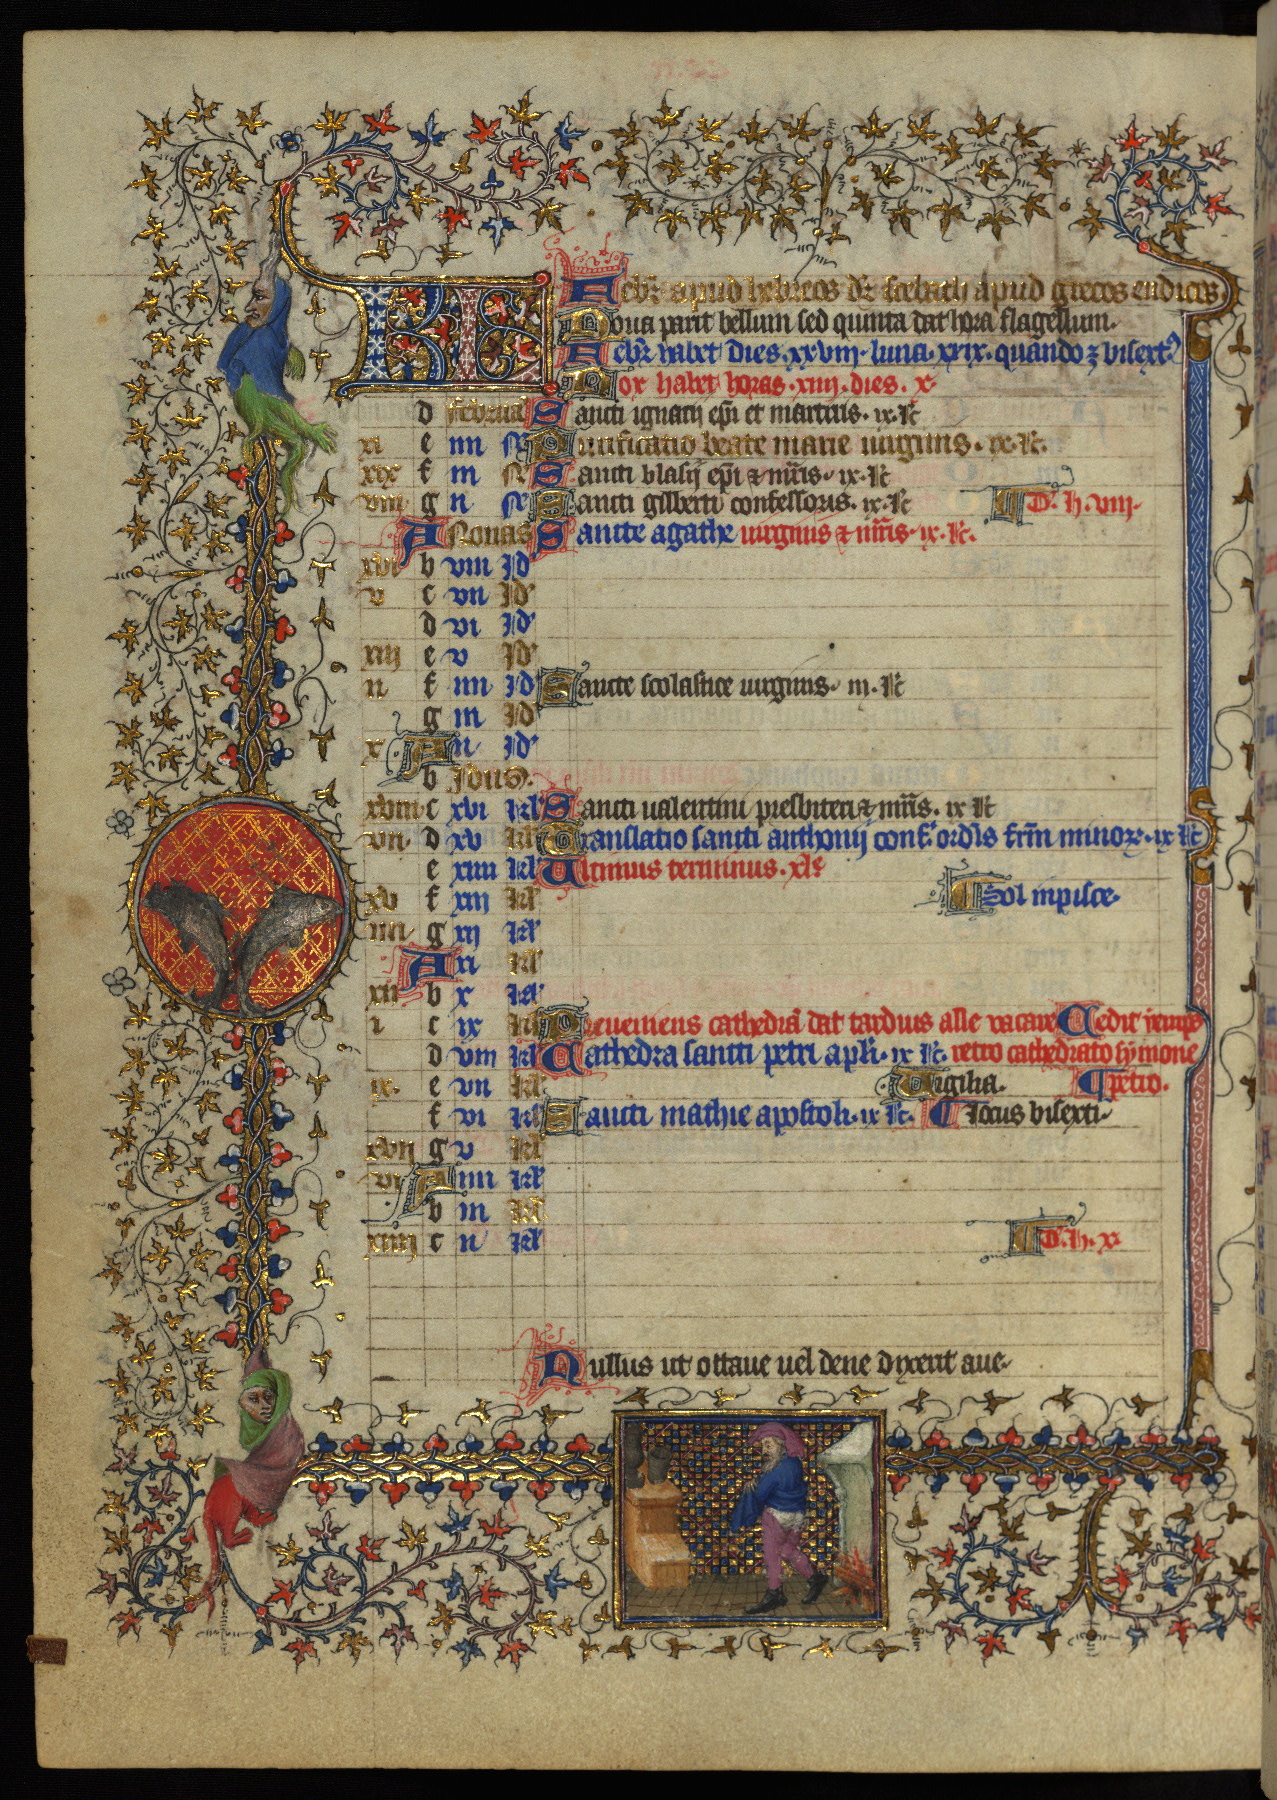 KL Febr apud hebreos dr scebath apud grecos eudicos
Nona parit bellum sed quinta dat hora flagellum.
Febr habet dies. xxviii. luna. xxix. quando z bisext
Nox habet horas. xiiii. dies. x.
d februa Sancti ignatii epi et martiris. ix. lc
xi e iiii N Purificatio beate marie uirginis. ix. lc.
xix f iii N Sancti blasii epi z mris. ix. lc
viii g ii N Sancti gilberti confessoris. ix. lc D. h. viii.
A Nonas Sancte agathe uirginis z mris. ix. lc.
xvi b viii Id
v c vii Id
d vi Id
xiii e v Id
ii f iiii Id Sancte scolastice uirginis. iii. lc
g iii Id
x A ii Id
b Idus.
xviii c xvi kl Sancti ualentini presbiteri z mris. ix lc
vii d xv kl Translatio sancti anthonii conf. ordis frm minoz. ix lc
e xiiii kl Ultimus terminus. xle
xv f xiii kl Sol in pisce.
iiii g xii kl
A xi kl
xii b x kl
i c ix kl Preueniens cathedra dat tardius asse uacare Cedit
d viii kl Cathedra sancti petri apli. ix lc. retro cathedrato symone
ix. e vii kl Vigilia. petro.
f vi kl Sancti mathie apostoli. ix lc. locus bisexti.
xvii g v kl
vi A iiii kl
b iii kl
xiiii c ii kl D. h. x
Nullus ut ottaue uel dene dixerit aue.